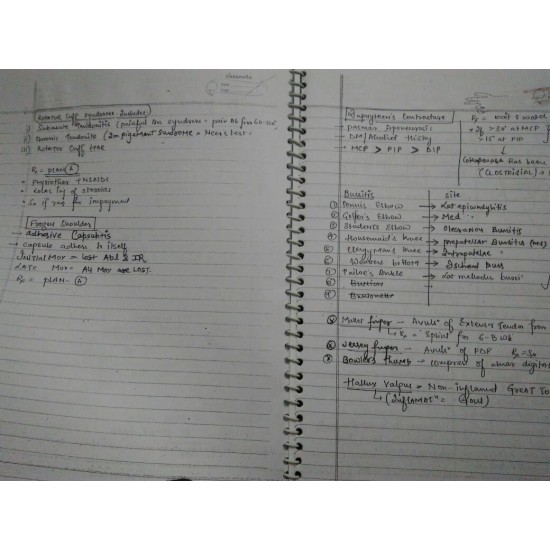 Rotator Cuff Syndrome. Includes
i) Subacute Tendonitis (painful arc syndrome - pain Ab from 60-120°
ii) Chronic Tendonitis
iii) Rotator Cuff tear
Rx = plan (A)
• Physiother + NSAIDs
• Local inj of steroids
• Sx if
Frozen Shoulder
- adhesive Capsulitis
- capsule adhere to itself
Initial Mov = lost Abd & IR
LATE Mov = All Mov are LOST.
Rx = PLAN - (A)
Dupuytren's Contracture
- palmar
- DM/Alcohol History
- MCP > PIP > DIP
Rx = wait & watch
* If > 30° at MCP
> 15° at PIP
Collagenase
(CLOSTRIDIAL)
Bursitis site
① Tennis Elbow → Lat epicondylitis
② Golfer's Elbow → Med "
③ Students Elbow → Olecranon Bursitis
④ Housemaid's knee → prepatellar Bursitis
⑤ Clergyman's knee → Infrapatellar "
⑥ Weavers bottom → Ischial Burs
⑦ Tailor's Ankle → Lat malleolus bursi
⑧ Bunion
Mallet finger - Avuls" of Extensor Tendon from
Rx = Splint for 6-8 wk
Jersey finger - Avuls" of FDP Rx = Sx
Bowlers thumb - compress" of ulnar digital
Hallux Valgus = Non-inflamed GREAT TO
(INFLAMAT" = Gout)